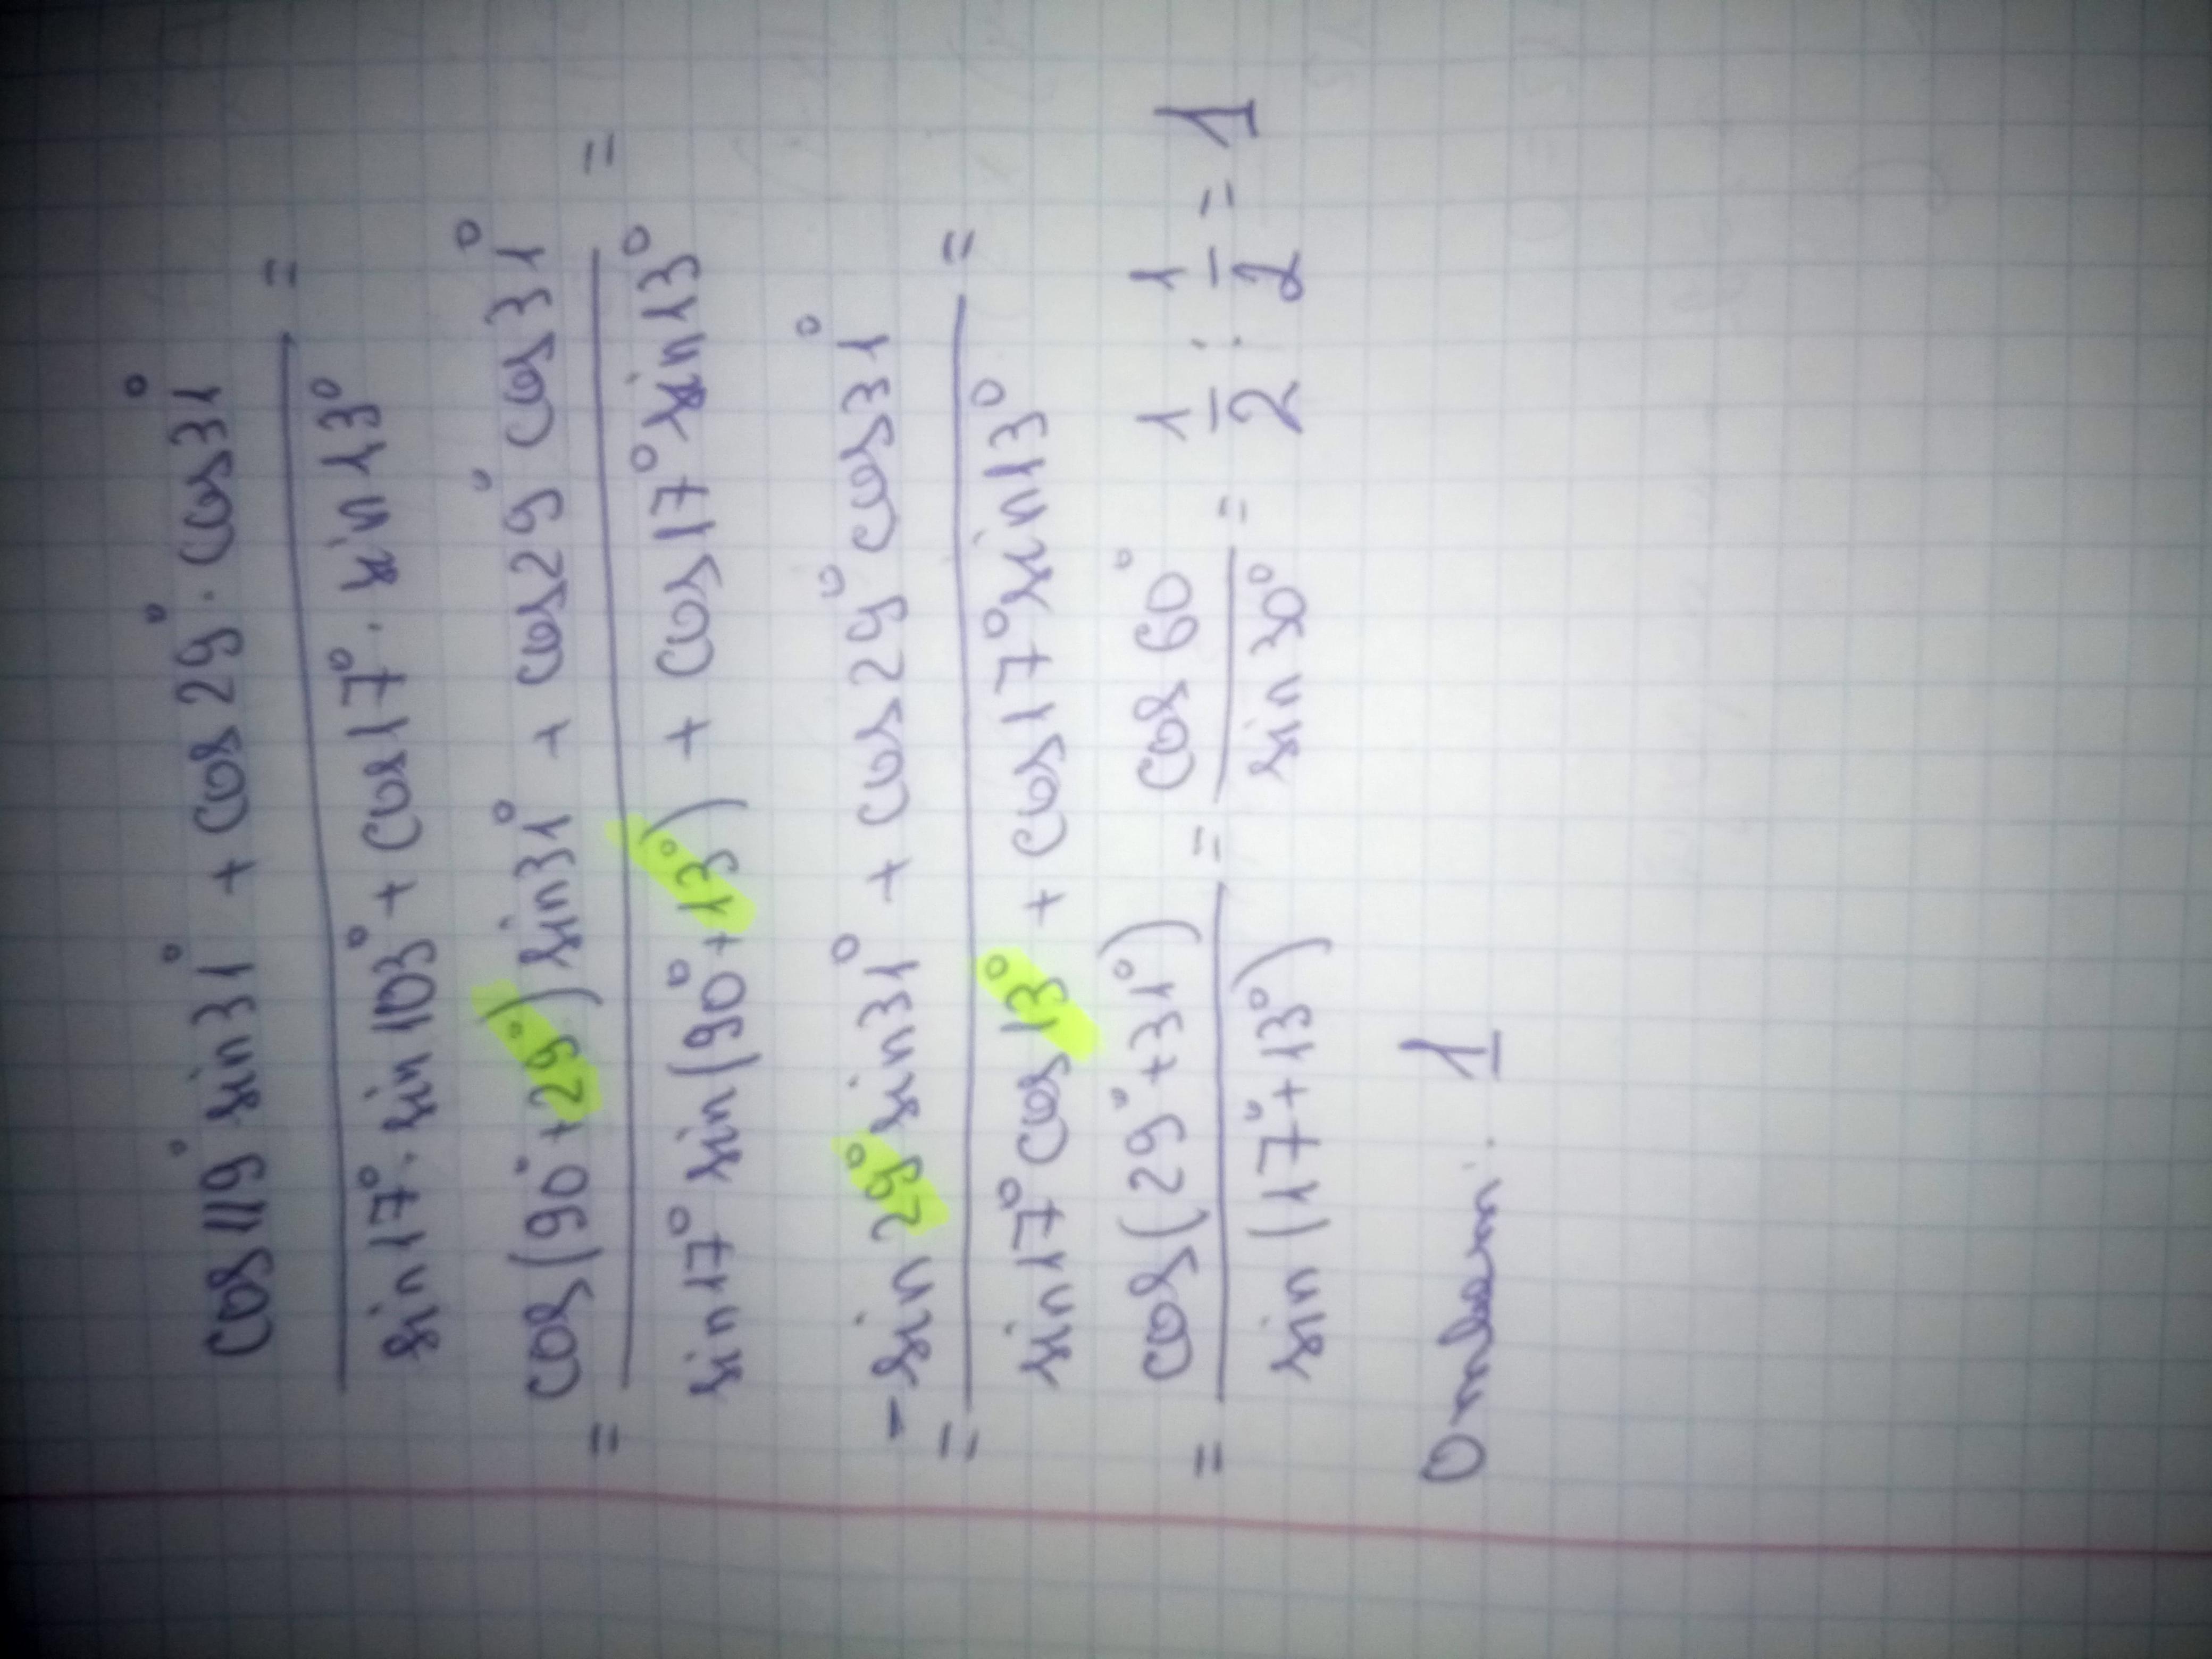 cos119° sin31° + cos29° · cos31°
=
sin17° · sin103° + cos17° · sin13°
cos(90° + 29°) sin31° + cos29° cos31°
= =
sin17° sin(90° + 13°) + cos17° sin13°
- sin29° sin31° + cos29° cos31°
= =
sin17° cos13° + cos17° sin13°
= cos(29° + 31°) / sin(17° + 13°) = cos60° / sin30° = 1/2 : 1/2 = 1
Ответ: 1